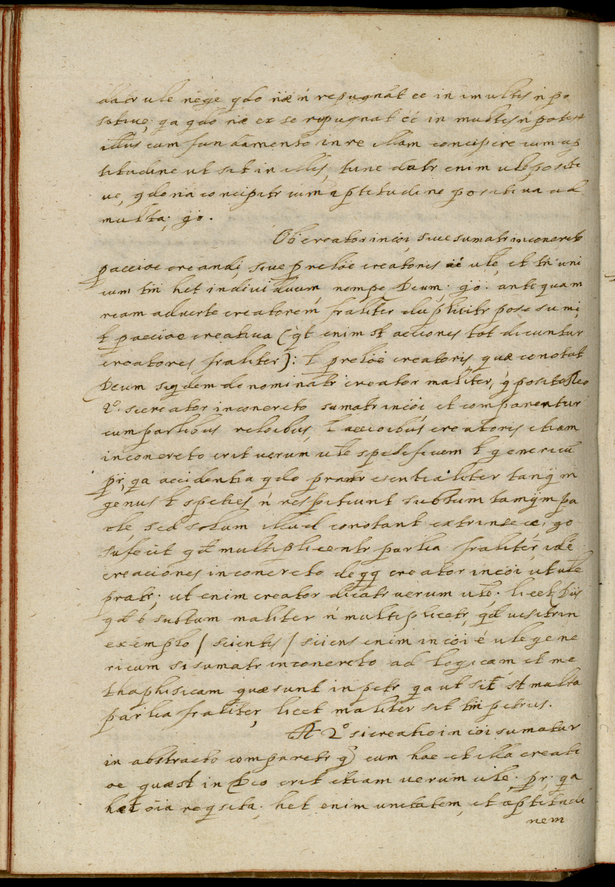 datr ule nege qdo nã n repugnat ee in multis n po
sitive; qa qdo nã ex se repugnat ee in multis n potest
illius cum fundamento in re illam concipere cum ap
titudine ut sit in illis, tunc datr enim ule positi
ve, qdo nã concipitr cum aptitudine positiva ad
multa; go.
Ob creator in coi sive sumatr in concreto
p accioe creandi sive p reloe creatoris ule, et tn uni
cum tm het individuum nempe Deum; go. antiquam
ream adverte creatorem fraliter dupliciter pose sumi
t p accioe creativa (qt enim st acciones tot dicuntur
creatores fraliter): t p reloe creatoris, quæ conotat
Deum siqdem denominatr creator maliter, q posito Reo
2º. si creator in concreto sumatr in coi et comparentur
cum partibus reloibus, t accioibus creatoris etiam
in concreto erit verum ule specificum t genericu
pr, qa accidentia qdo pratr esentialiter tanq in
genus t species, n respiciunt subtum tamqm pa
te sed solum illud constant extrinsece; go
suficit qd multiplicentr partia fraliter ide
creaciones in concreto de qq creator in coi ut ule
pratr; ut enim creator dicatr verum ule. licet
qd e subtum maliter n multiplicetr, qd visitr in
exemplo / scientis / sciens enim in coi é ule gene
ricum si sumatr in concreto ad logicam et me
thaphisicam quæ sunt in petr qa ut sic st multa
partia fraliter, licet maliter sit tm petrus.
2º si creatio in coi sumatur
in abstracto comparetr q cum hac et illa creati
oe, quæ st in Deo erit etiam verum ule. pr; qa
het oia reqsita; het enim unitatem, et aptitudi
nem